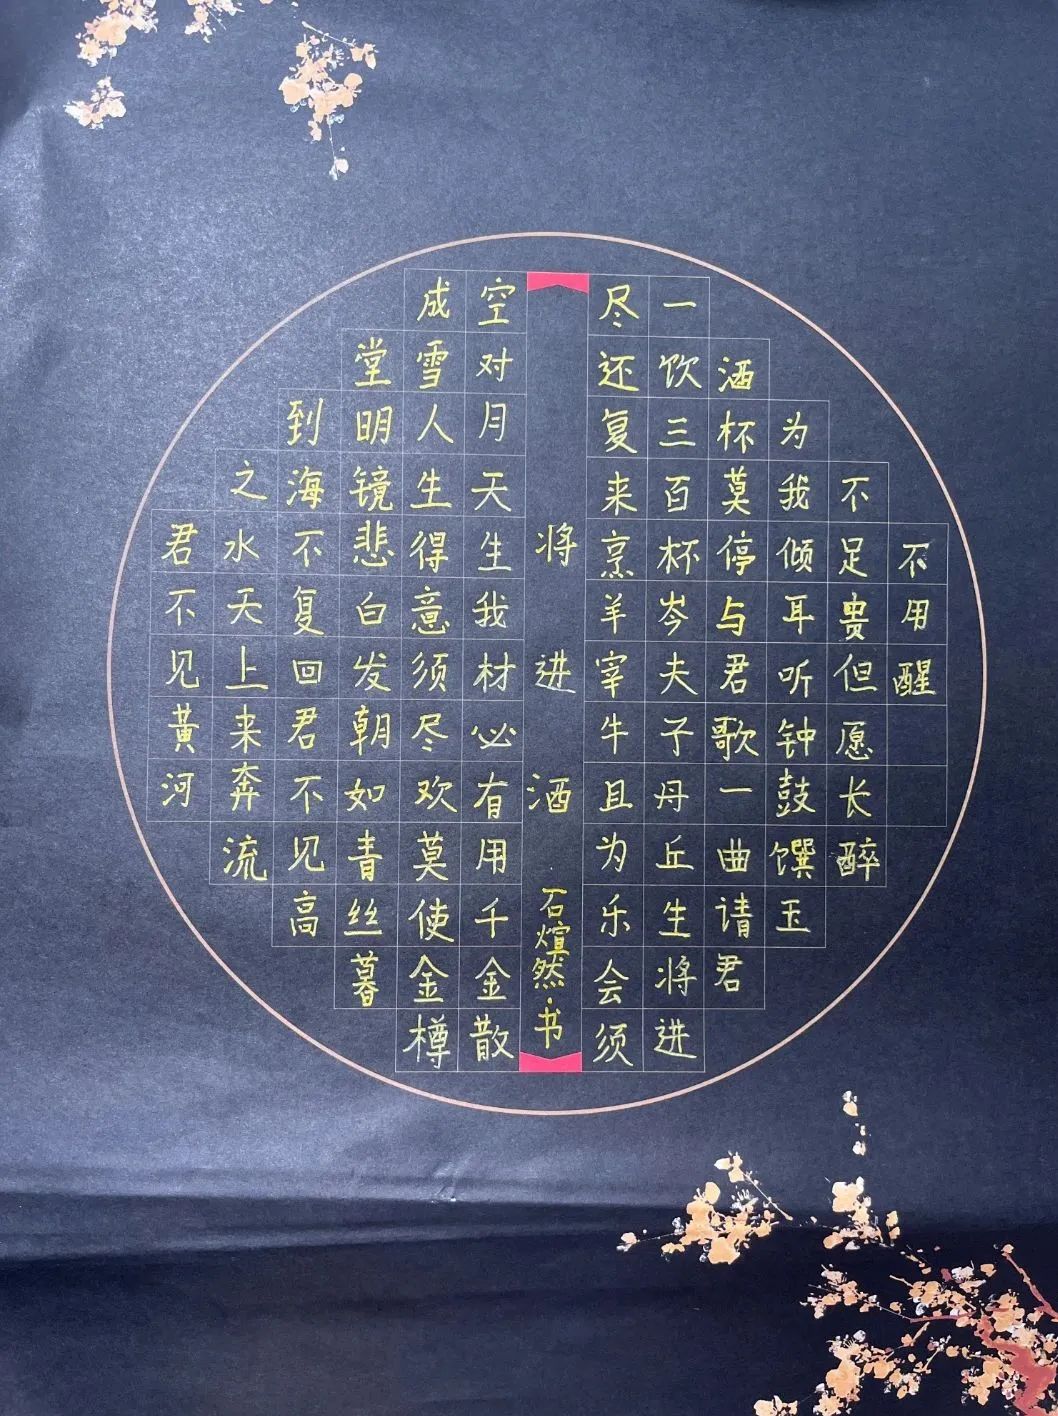 君不见黄河
之水天上来奔流
到海不复回君不见高
堂明镜悲白发朝如青丝暮
成雪人生得意须尽欢莫使金樽
空对月天生我材必有用千金散
将进酒
石煊然·书
尽还复来烹羊宰牛且为乐会须
一饮三百杯岑夫子丹丘生将进
酒杯莫停与君歌一曲请君
为我倾耳听钟鼓馔玉
不足贵但愿长醉
不用醒